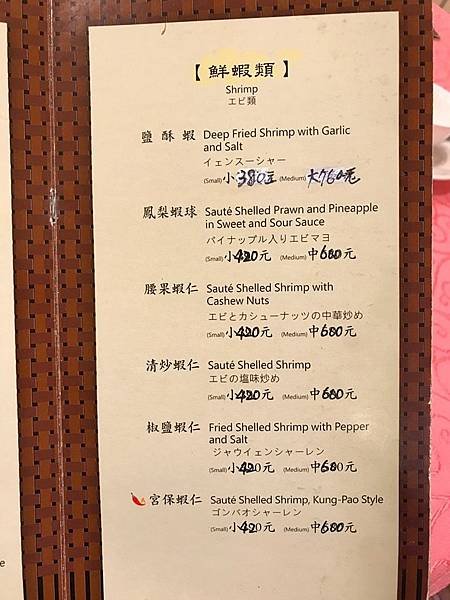 【鮮蝦類】
Shrimp
エビ類
鹽酥蝦 Deep Fried Shrimp with Garlic
and Salt
イェンスーシャー
(Small) 小380元 (Medium) 大760元
鳳梨蝦球 Sauté Shelled Prawn and Pineapple
in Sweet and Sour Sauce
パイナップル入りエビマヨ
(Small) 小420元 (Medium) 中680元
腰果蝦仁 Sauté Shelled Shrimp with
Cashew Nuts
エビとカシューナッツの中華炒め
(Small) 小420元 (Medium) 中680元
清炒蝦仁 Sauté Shelled Shrimp
エビの塩味炒め
(Small) 小420元 (Medium) 中680元
椒鹽蝦仁 Fried Shelled Shrimp with Pepper
and Salt
ジャウイェンシャーレン
(Small) 小420元 (Medium) 中680元
宮保蝦仁 Sauté Shelled Shrimp, Kung-Pao Style
ゴンバオシャーレン
(Small) 小420元 (Medium) 中680元
e